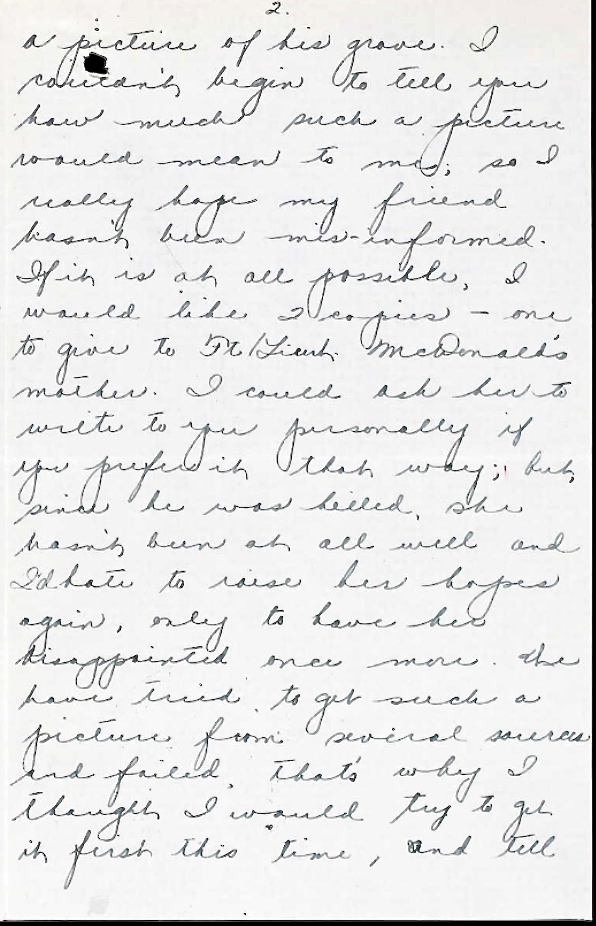 2.
a picture of his grave. I
couldn't begin to tell you
how much such a picture
would mean to me; so I
really hope my friend
hasn't been mis-informed.
If it is at all possible, I
would like 2 copies - one
to give to Ft/Lieut. McDonald's
mother. I could ask her to
write to you personally if
you prefer it that way; but,
since he was killed, she
hasn't been at all well and
I'd hate to raise her hopes
again, only to have her
disappointed once more. We
have tried to get such a
picture from several sources
and failed, that's why I
thought I would try to get
it first this time, and tell